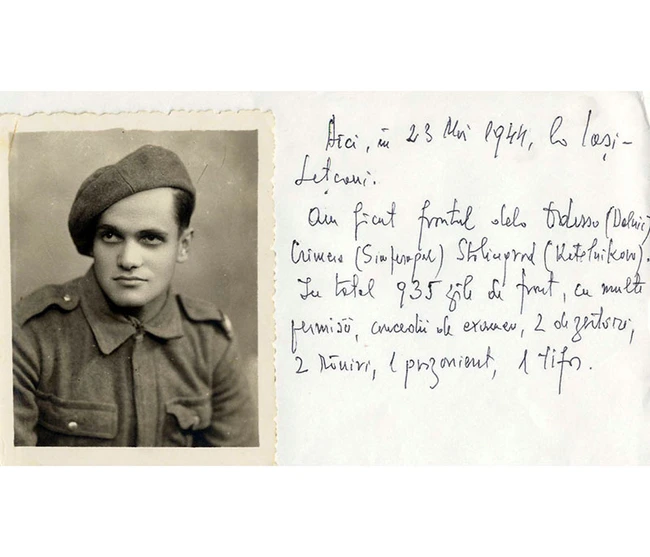 Aici, în 23 Mai 1944, la Iași-
Lețcani.
Am făcut frontul dela Odessa (Dalnic)
Crimeia (Simferopol) Stalingrad (Kotelnikovo).
În total 935 zile de front, cu multe
permisii, concedii de examen, 2 dezertări,
2 răniri, 1 prizonierat, 1 tifos.